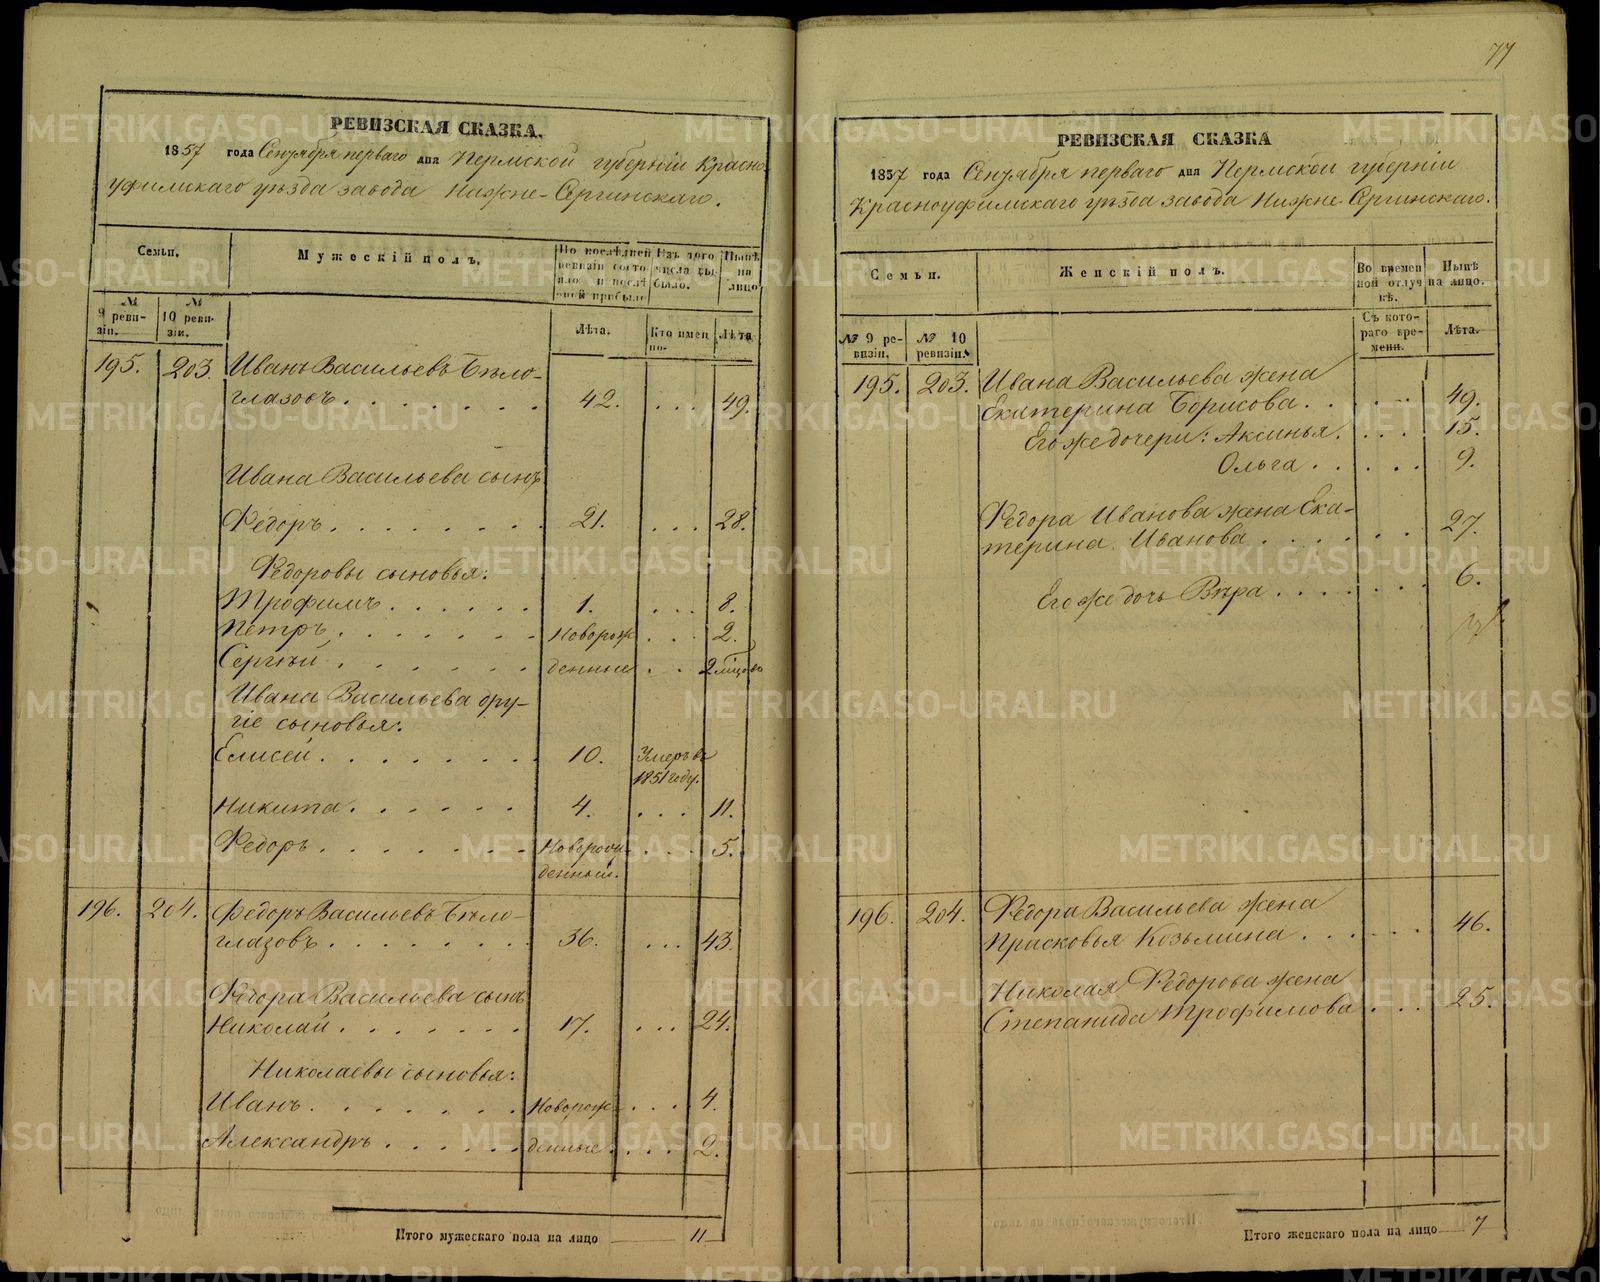 77
РЕВИЗСКАЯ СКАЗКА.
1857 года Сентября перваго дня Пермской губерніи Красно-
уфимскаго уѣзда завода Нижне-Сергинскаго.
Семьи. Мужескій полъ. По послѣдней ревизіи состояло и послѣ оной прибыло Изъ того числа выбыло. Нынѣ на лицо
№ 9 ревизіи. № 10 ревизіи. Лѣта. Кто именно. Лѣта
195. 203. Иванъ Васильевъ Бѣло-
глазовъ. 42. 49.
Ивана Васильева сынъ
Ѳедоръ. 21. 28.
Ѳедоровы сыновья:
Трофимъ. 1. 8.
Петръ. Новорож 2.
Сергѣй денные 2 мѣсяцовъ
Ивана Васильева дру-
гіе сыновья:
Елисей. 10. Умеръ въ
1851 году.
Никита. 4. 11.
Ѳедоръ. Новорож-
денный. 5.
196. 204. Ѳедоръ Васильевъ Бѣло-
глазовъ. 36. 43.
Ѳедора Васильева сынъ
Николай. 17. 24.
Николаевы сыновья:
Иванъ. Новорож- 4.
Александръ. денные. 2.
Итого мужескаго пола на лицо 11
РЕВИЗСКАЯ СКАЗКА
1857 года Сентября перваго дня Пермской губерніи
Красноуфимскаго уѣзда завода Нижне-Сергинскаго.
Семьи. Женскій полъ. Во временной отлучкѣ. Нынѣ на лицо.
№ 9 ревизіи. № 10 ревизіи. Съ котораго времени. Лѣта.
195. 203. Ивана Васильева жена
Екатерина Борисова. 49.
Его же дочери: Аксинья. 15.
Ольга. 9.
Ѳедора Иванова жена Ека-
терина Иванова. 27.
Его же дочь Вѣра. 6.
196. 204. Ѳедора Васильева жена
Прасковья Козьмина. 46.
Николая Ѳедорова жена
Степанида Трофимова. 25.
Итого женскаго пола на лицо 7
METRIKI.GASO-URAL.RU